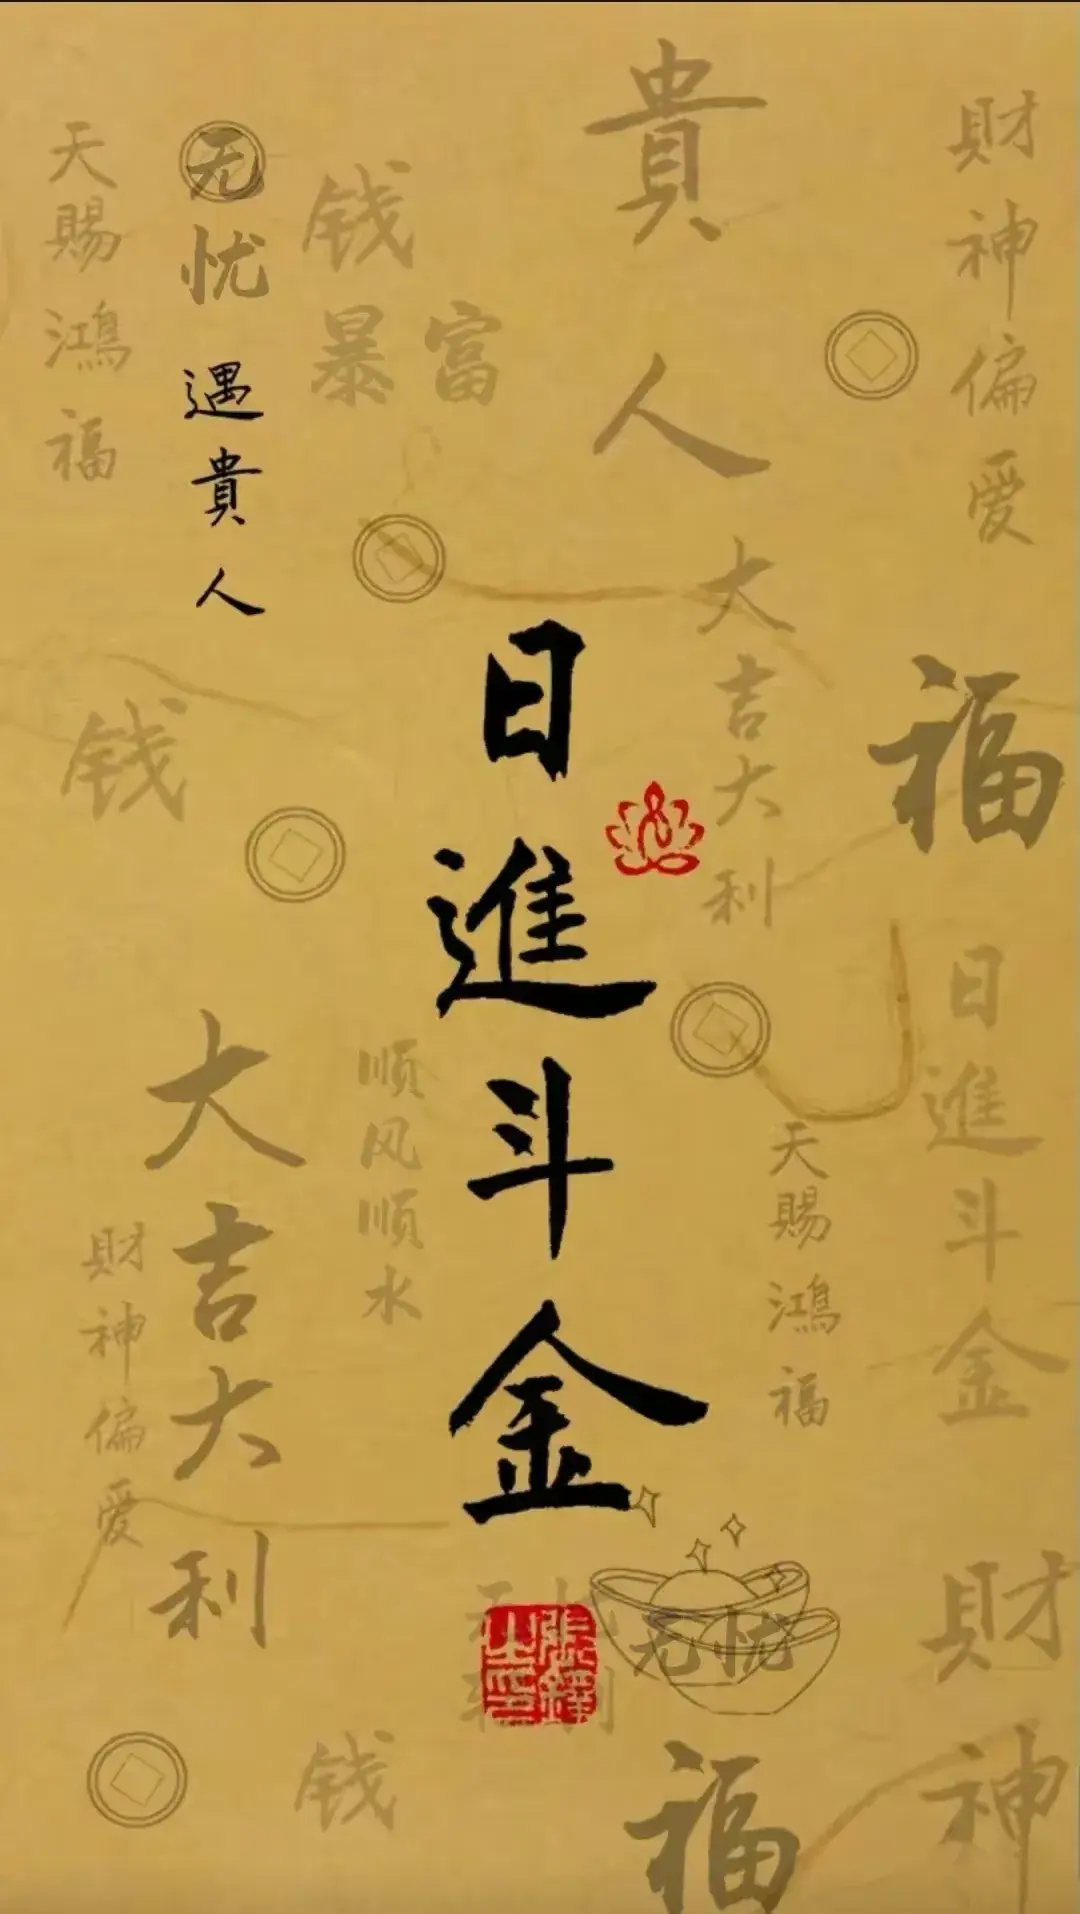 日進斗金
遇貴人
无忧
天賜鴻福
钱
暴富
貴人
財神偏爱
大吉大利
福
钱
日進斗金
大吉大利
順风順水
天賜鴻福
財神偏爱
无忧
財神
钱
福